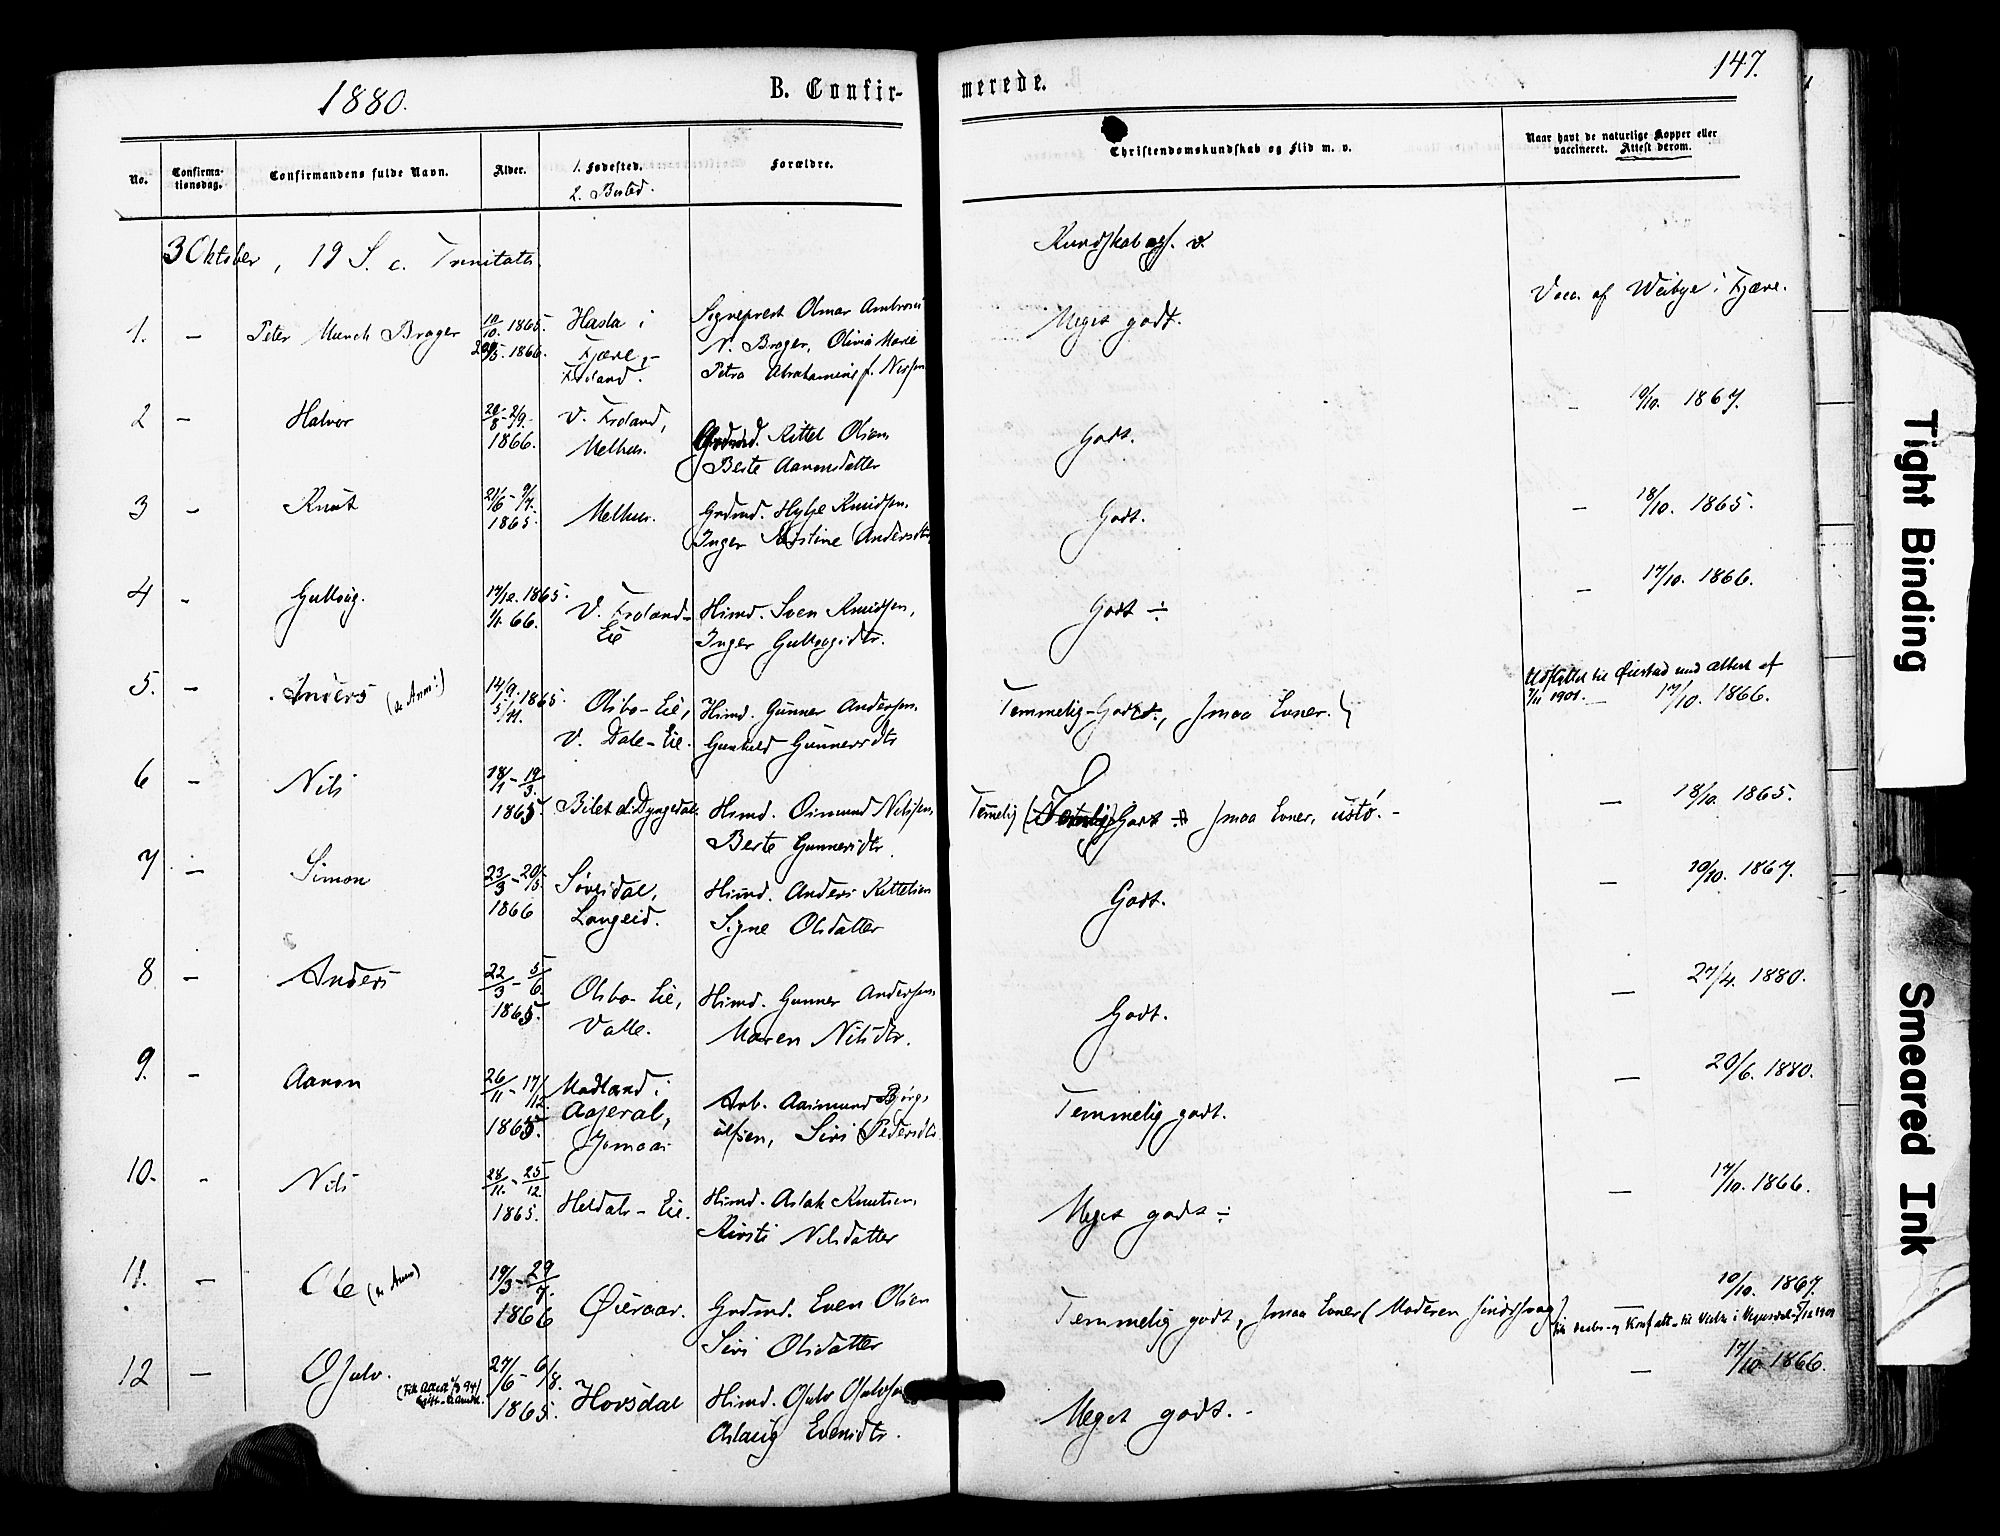 1880.
B. Confir-
merede.
147.
No.
Confirma-
tionsdag.
Confirmandens fulde Navn.
Alder.
1. Fødested.
2. Bosted.
Forældre.
Christendomskundskab og Flid m. v.
Naar havt de naturlige Kopper eller
vaccineret. Attest derom.
3 Oktober, 19 S. e. Trinitatis.
Kundskab
Vacc. af Weibye i Fjære.
1. — Peter Munch Brager
10/10. 1865.
1866.
Hasla i
Fjære,
Froland.
Sogneprest Olmar Ambrosius
N. Brager, Olivia Marie
Petra Abrahamine f. Nissen
Meget godt.
2 — Halvor
1866.
V. Froland,
Melhus.
Grdmd. Kittel Olsen,
Berte Aaronsdatter
Godt.
— 1867.
3 — Knut
21/6 - 9/7.
1865.
Melhus.
Grdmd. Knudsen,
Inger Kristine Andersdtr
Godt.
— 18/10. 1865.
4 - Gullvig.
17/12. 1865.
66.
V. Froland-
Eie
Hsmd. Sven Knudsen,
Inger
Godt ÷
— 17/10. 1866.
5. — Anders
14/9. 1865.
Olsbo-Eie,
V. Dale-Eie.
Hsmd. Gunner Andersen.
Gunhild Gunnersdtr
Temmelig-Godt, smaa Evner.
1901. — 17/10. 1866.
6 — Nils
18/1 - 19/3.
1865
Hsmd. Nilssen,
Berte Gunnersdtr
Temmelig Godt smaa Evner, ustø. -
— 18/10. 1865.
7 — Simon
23/3 - 20/5
1866
Langeid.
Hsmd. Anders Kittelsen
Signe Olsdatter
Godt.
— 10/10. 1867.
8 — Anders
22/3 - 5/6.
1865.
Olsbo-Eie,
Valle.
Hsmd. Gunner Andersen,
Maren Nilsdtr.
Godt.
— 27/4. 1880.
9. - Aaron
26/11 - 17/12.
1865.
i
Arb. Aasmund Bjørg-
ulfsen, Siri Pedersdtr
Temmelig godt.
— 20/6. 1880.
10. - Nils
28/11. - 25/12
1865.
Heldals-Eie.
Hsmd. Aslak Knutsen,
Kirsti Nilsdatter
Meget godt ÷
— 17/10. 1866.
11. — Ole
19/3 - 29/7.
1866
Grdmd. Even Olsen
Siri Olsdatter
Temmelig godt, smaa Evner (Moderen sindssvag)
— 10/10. 1867.
12 — Osulv.
27/6 - 6/8.
1865.
Hovsdal
Hsmd. Osulv Osulvsen
Aslaug Evensdtr.
Meget godt. -
— 17/10. 1866.
Tight Binding
Smeared Ink